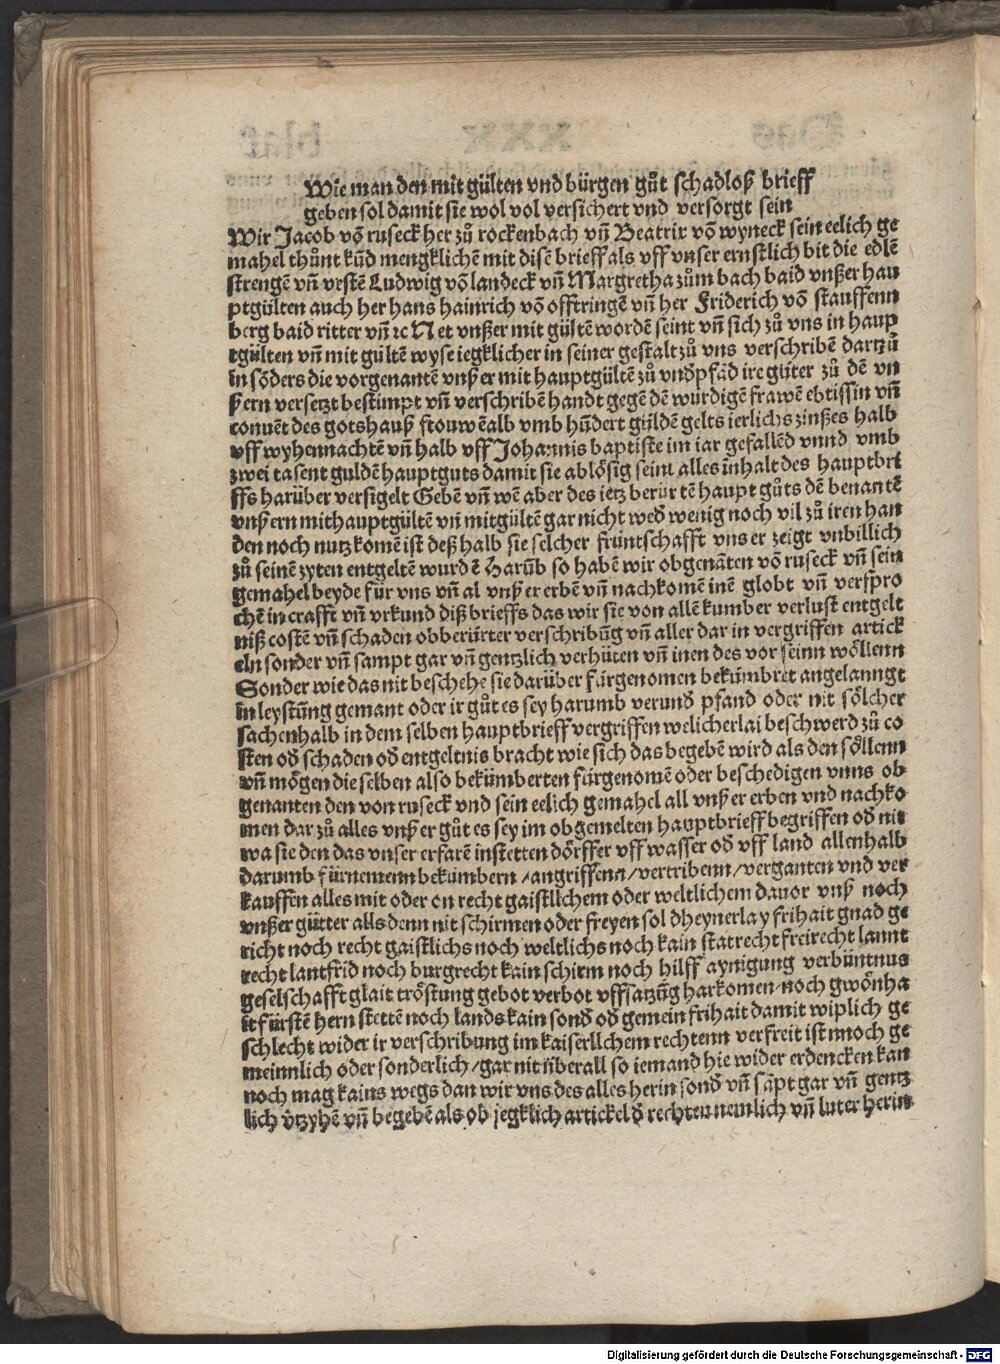 Wie man den mit gülten vnd bürgen gůt schadloß brieff
geben sol damit sie wol vol versichert vnd versorgt sein
Wir Jacob võ ruseck her zů rockenbach vñ Beatrix võ wyneck sein eelich ge
mahel thůnt kũd mengklichẽ mit disẽ brieff als vff vnser ernstlich bit die edlẽ
strengẽ vñ vestẽ Ludwig võ landeck vñ Margretha zům bach baid vnßer hau
ptgülten auch her hans hainrich võ offtringẽ vñ her Friderich võ stauffenn
berg baid ritter vñ ⁊c Net vnßer mit gültẽ wordẽ seint vñ sich zů vns in haup
tgülten vñ mit gültẽ wyse iegklicher in seiner gestalt zů vns verschribẽ dartzů
in sõders die vorgenantẽ vnßer mit hauptgültẽ zů vnd̕pfãd ire gütter zů dẽ vn
ßern versetzt bestimpt vñ verschribẽ handt gegẽ dẽ wurdigẽ frawẽ ebtissin vñ
conuẽt des gotshauß frouwẽalb vmb hũdert güldẽ gelts ierlichs zinßes halb
vff wyhennachtẽ vñ halb vff Johannis baptiste im iar gefallẽd vnnd vmb
zwei tasent guldẽ hauptguts damit sie ablösig seint alles inhalt des hauptbri
ffs harüber versigelt Gebẽ vñ wẽ aber des ietz berür tẽ haupt gůts dẽ benantẽ
vnßern mithauptgültẽ vñ mitgültẽ gar nicht wed̕ wenig noch vil zů iren han
den noch nutz komẽ ist deß halb sie selcher früntschafft vns er zeigt vnbillich
zů seinẽ zyten entgeltẽ wurdẽ Harũb so habẽ wir obgenãten võ ruseck vñ sein
gemahel beyde für vns vñ al vnßer erbẽ vñ nachkomẽ inẽ globt vñ verspro
chẽ in crafft vñ vrkund diß brieffs das wir sie von allẽ kumber verlust entgelt
niß costẽ vñ schaden obberürter verschribũg vñ aller dar in vergriffen artick
eln sonder vñ sampt gar vñ gentzlich verhüten vñ inen des vor seinn wöllenn
Sonder wie das nit beschehe sie darüber fürgenomen bekümbret angelanngt
in leystũng gemant oder ir gůt es sey harumb verund̕ pfand oder nit sölcher
sachenhalb in dem selben hauptbrieff vergriffen welicherlai beschwerd zů co
sten od̕ schaden od̕ entgeltnis bracht wie sich das begebẽ wird als den söllenn
vñ mögen die selben also bekümberten fürgenomẽ oder beschedigen vnns ob
genanten den von ruseck vnd sein eelich gemahel all vnßer erben vnd nachko
men dar zů alles vnßer gůt es sey im obgemelten hauptbrieff begriffen od̕ nit
wa sie den das vnser erfarẽ in stetten dörffer vff wasser od̕ vff land allenhalb
darumb fürnemenn bekümbern / angriffenn / vertribenn / verganten vnd ver
kauffen alles mit oder on recht gaistlichem oder weltlichem dauor vnß noch
vnßer gütter alls denn nit schirmen oder freyen sol dheynerlay frihait gnad ge
richt noch recht gaistlichs noch weltlichs noch kain statrecht freirecht lannt
recht lantfrid noch burgrecht kain schirm noch hilff aynigung verbüntnus
geselschafft glait tröstung gebot verbot vffsatzũg harkomen noch gwönha
it fürstẽ hern stettẽ noch lands kain sond̕ od̕ gemein frihait damit wiplich ge
schlecht wider ir verschribung im kaiserllchem rechtenn verfreit ist nnoch ge
meinnlich oder sonderlich / gar nit überall so iemand hie wider erdencken kan
noch mag kains wegs dan wir vns des alles herin sond̕ vñ sãpt gar vñ gentz
lich v̕tzyhẽ vñ begebẽ als ob jegklich artickel d̕ rechten nemlich vñ luter herin
Digitalisierung gefördert durch die Deutsche Forschungsgemeinschaft - DFG